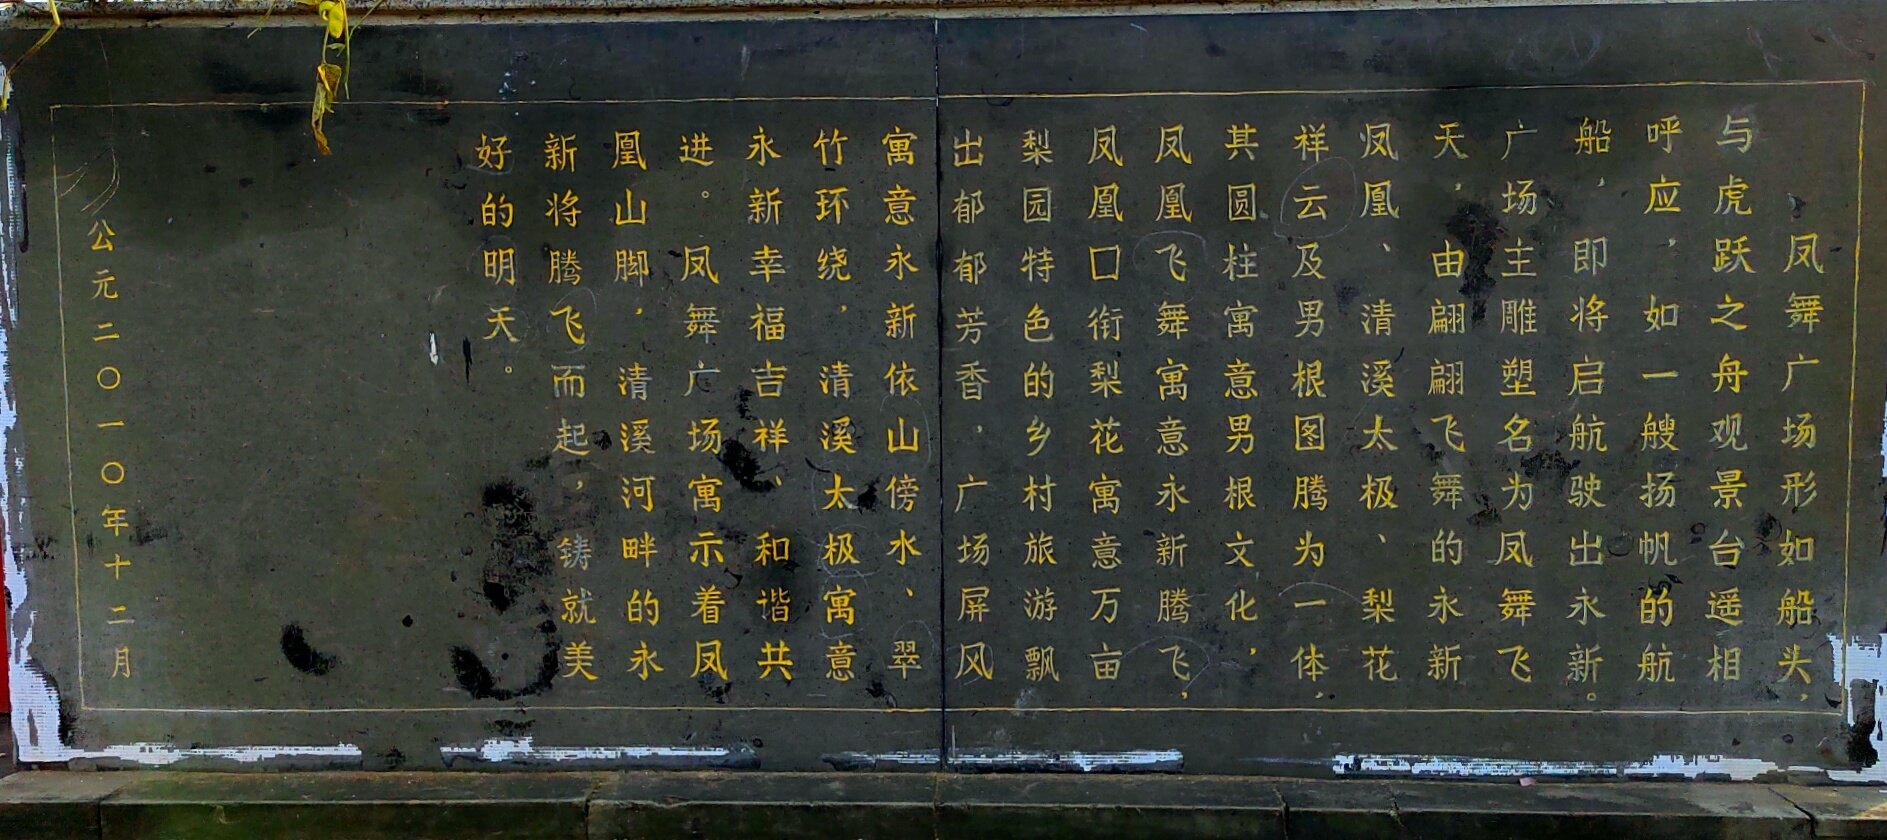 凤舞广场形如船头，
与虎跃之舟观景台遥相
呼应，如一艘扬帆的航
船，即将启航驶出永新。
广场主雕塑名为凤舞飞
天，由翩翩飞舞的永新
凤凰、清溪太极、梨花
祥云及男根图腾为一体，
其圆柱寓意男根文化，
凤凰飞舞寓意永新腾飞，
凤凰口衔梨花寓意万亩
梨园特色的乡村旅游飘
出郁郁芳香．广场屏风
寓意永新依山傍水、翠
竹环绕，清溪太极寓意
永新幸福吉祥、和谐共
进。凤舞广场寓示着凤
凰山脚，清溪河畔的永
新将腾飞而起，铸就美
好的明天。
公元二〇一〇年十二月